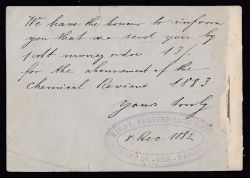 We have the honour to inform
you that we send you by
post money order 13/-
for the abonnement of the
Chemical Review 1883
Yours truly
8 Dec. 1882